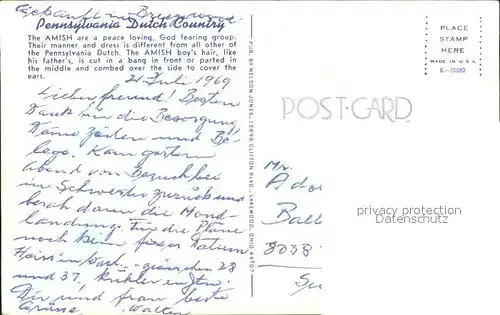 Gekauft in
Pennsylvania Dutch Country
The AMISH are a peace loving, God fearing group.
Their manner and dress is different from all other of
the Pennsylvania Dutch. The AMISH boy's hair, like
his father's, is cut in a bang in front or parted in
the middle and combed over the side to cover the
ears.
21 Juli 1969
Lieber freund! Besten
Dank für die Besorgung
Deine zeilen und Be-
lege. Kam gestern
abend von Besuch bei
m Schwester zurück und
sah dann die Mond-
landung. Für die Pläne
noch kein fixes Datum
28
und 37. Kühler
Dir und frau beste
Grüsse Walter
PUB. BY NELSON JONES, 17896 CLIFTON BLVD., LAKEWOOD, OHIO 44107
PLACE
STAMP
HERE
MADE IN U.S.A.
K-10282
POST-CARD
Mr.
Ado
Ball
8038
privacy protection
oldthing.de